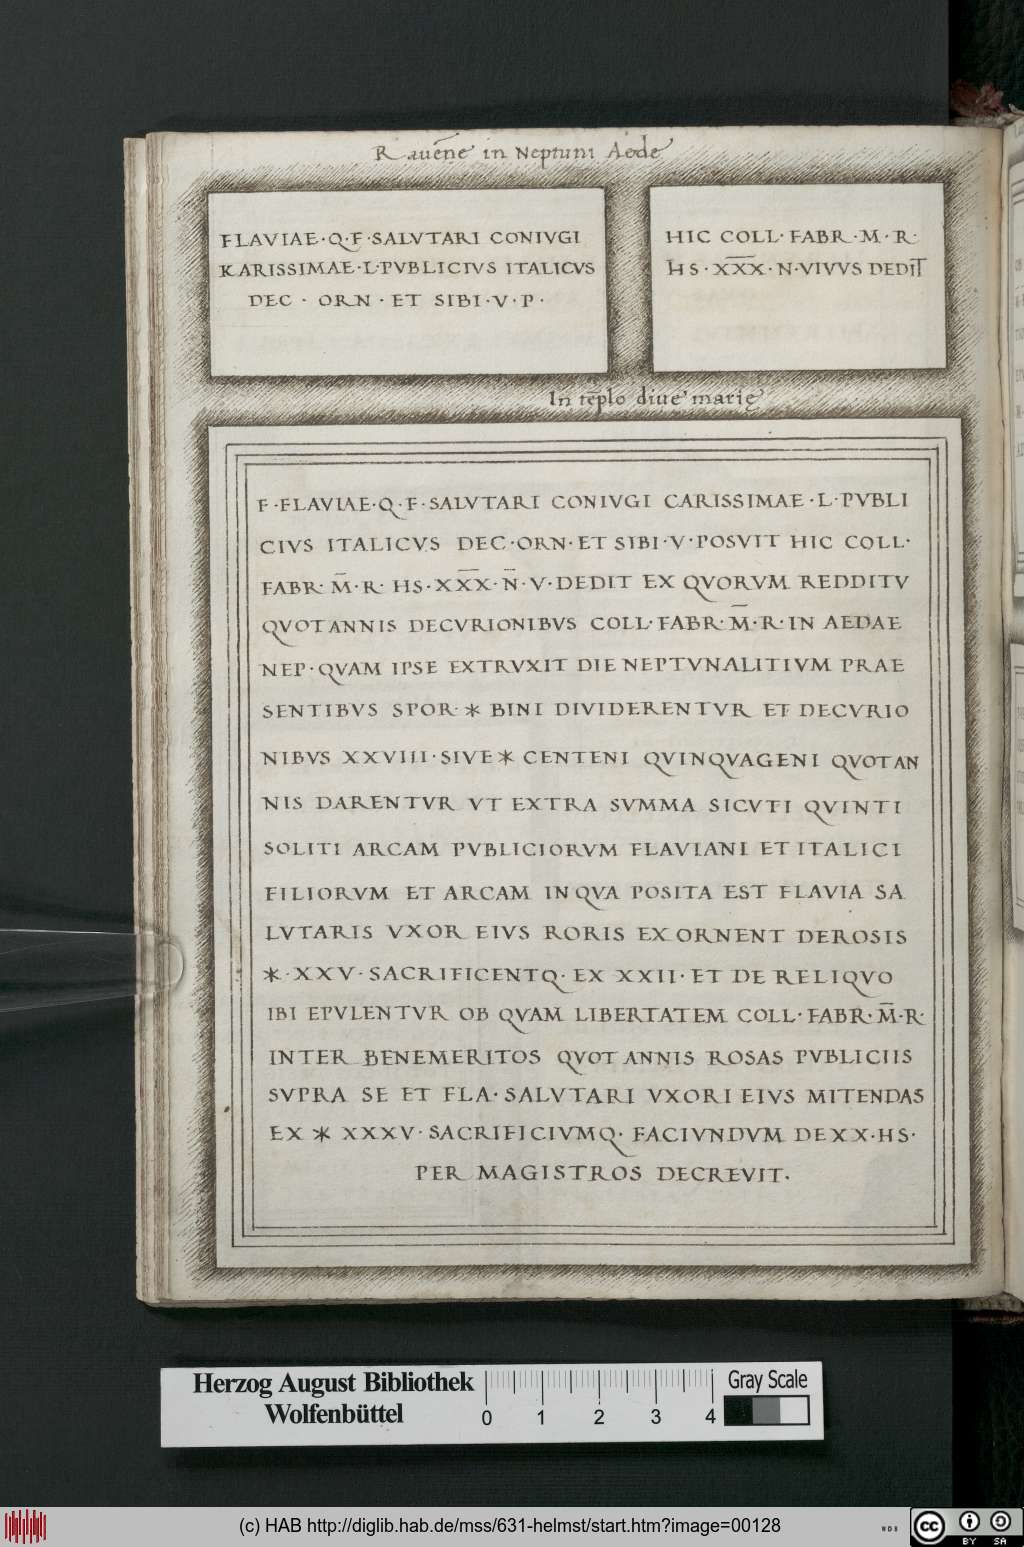 Rauēne in Neptuni Aede
FLAVIAE·Q·F·SALVTARI CONIVGI
KARISSIMAE·L·PVBLICIVS ITALICVS
DEC · ORN · ET SIBI·V·P·
HIC COLL·FABR·M·R·
HS·X̅X̅X̅·N·VIVVS DEDIT
In tēplo diue marię
F·FLAVIAE·Q·F·SALVTARI CONIVGI CARISSIMAE·L·PVBLI
CIVS ITALICVS DEC·ORN·ET SIBI·V·POSVIT HIC COLL·
FABR·M̅·R· HS·X̅X̅X̅·N̅·V·DEDIT EX QVORVM REDDITV
QVOTANNIS DECVRIONIBVS COLL·FABR·M̅·R·IN AEDAE
NEP·QVAM IPSE EXTRVXIT DIE NEPTVNALITIVM PRAE
SENTIBVS SPOR·* BINI DIVIDERENTVR ET DECVRIO
NIBVS XXVIII·SIVE * CENTENI QVINQVAGENI QVOTAN
NIS DARENTVR VT EXTRA SVMMA SICVTI QVINTI
SOLITI ARCAM PVBLICIORVM FLAVIANI ET ITALICI
FILIORVM ET ARCAM IN QVA POSITA EST FLAVIA SA
LVTARIS VXOR EIVS RORIS EXORNENT DEROSIS
*·XXV·SACRIFICENTQ·EX XXII·ET DE RELIQVO
IBI EPVLENTVR OB QVAM LIBERTATEM COLL·FABR·M̅·R·
INTER BENEMERITOS QVOTANNIS ROSAS PVBLICIIS
SVPRA SE ET FLA·SALVTARI VXORI EIVS MITENDAS
EX * XXXV·SACRIFICIVMQ·FACIVNDVM DEXX·HS·
PER MAGISTROS DECREVIT·
Herzog August Bibliothek
Wolfenbüttel
0 1 2 3 4
Gray Scale
(c) HAB http://diglib.hab.de/mss/631-helmst/start.htm?image=00128
WDB
cc BY SA